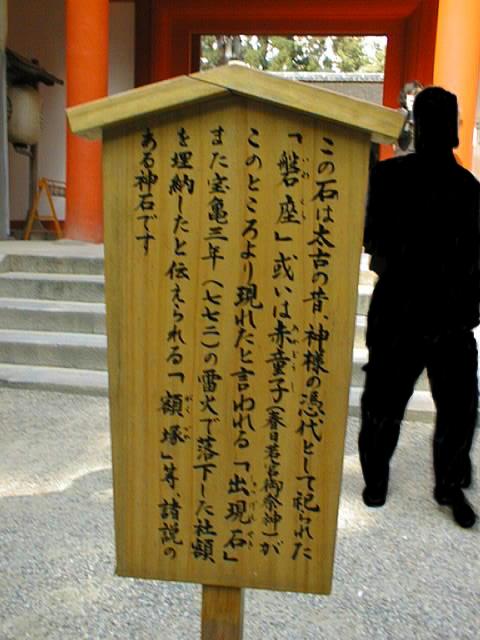 この石は太古の昔、神様の憑代として祀られた
「磐座」或いは赤童子(春日若宮御祭神)が
このところより現れたと言われる「出現石」
また宝亀三年(七七二)の雷火で落下した社額
を埋納したと伝えられる「額塚」等、諸説の
ある神石です